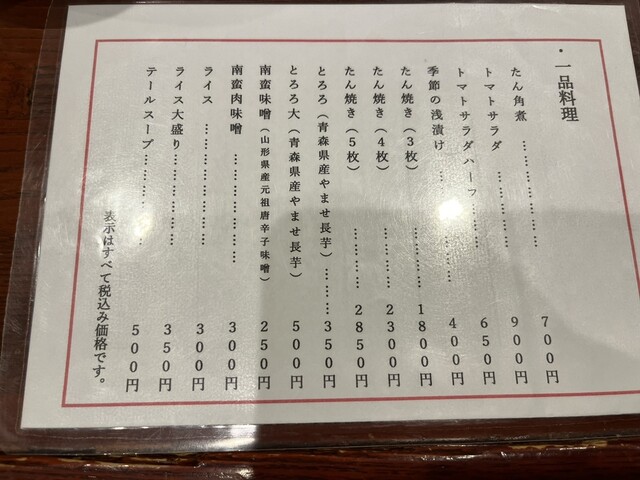 ・一品料理
たん角煮 ……………… 700円
トマトサラダ ………… 900円
トマトサラダハーフ …… 650円
季節の浅漬け ………… 400円
たん焼き（3枚） ……… 1800円
たん焼き（4枚） ……… 2300円
たん焼き（5枚） ……… 2850円
とろろ（青森県産やませ長芋）……… 350円
とろろ大（青森県産やませ長芋） 500円
南蛮味噌（山形県産元祖唐辛子味噌） 250円
南蛮肉味噌 ……………… 300円
ライス ……………… 300円
ライス大盛り ………… 350円
テールスープ ………… 500円
表示はすべて税込み価格です。